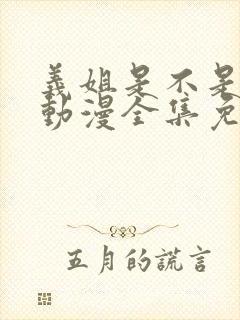 義姐是不是
動漫全集免
五月的謊言